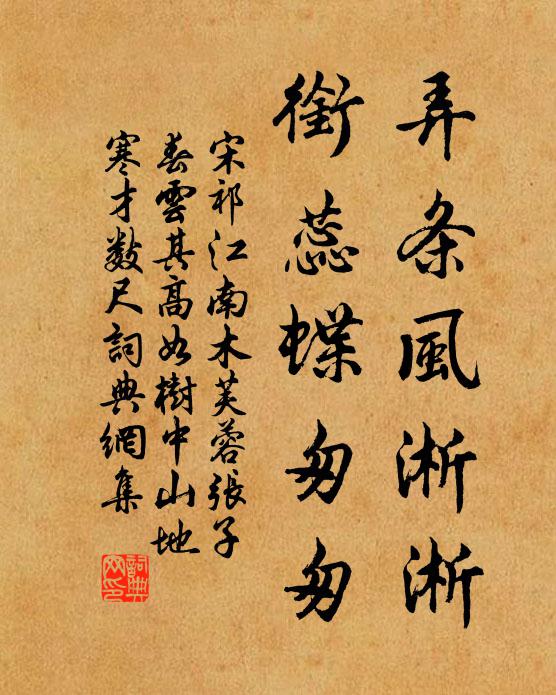 弄条風淅淅
銜蕊蝶匆匆
宋祁江南木芙蓉張子
春雲其高如樹中山地
寒才数尺詞典網集
詞典
网印